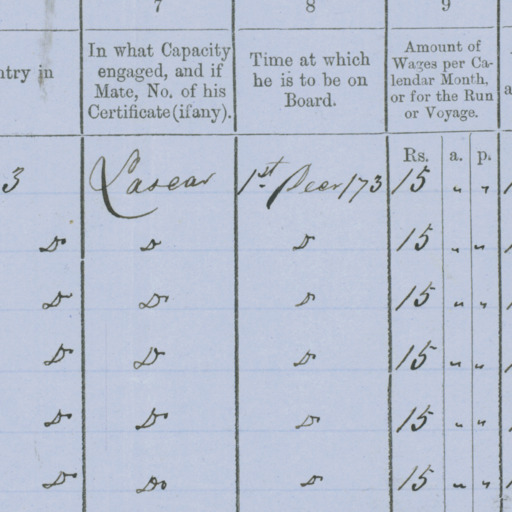 7 8 9
ntry in
In what Capacity
engaged, and if
Mate, No. of his
Certificate (if any).
Time at which
he is to be on
Board.
Amount of
Wages per Ca-
lendar Month,
or for the Run
or Voyage.
Rs. a. p.
3 Lascar 1st Decr 173 15 " "
Do Do Do 15 " "
Do Do Do 15 " "
Do Do Do 15 " "
Do Do Do 15 " "
Do Do Do 15 " "